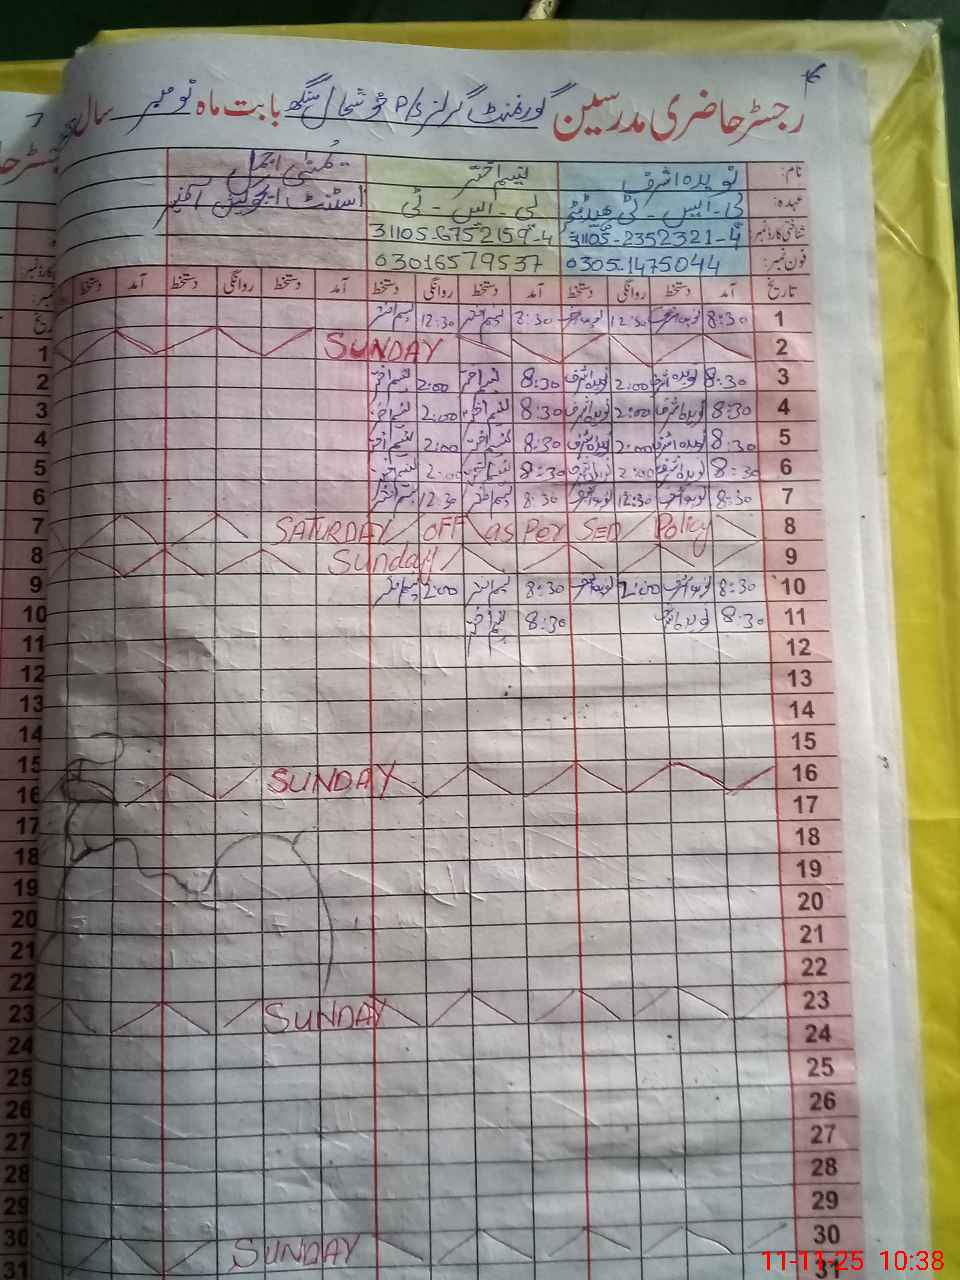 رجسٹر حاضری مدرسین گورنمنٹ گرلز P/S خوشحال سنگھ بابت ماہ نومبر سال
نام: نویدہ اشرف نسیم اختر
عہدہ: پی-ایس-ٹی ہیڈ ٹیچر پی-ایس-ٹی
شناختی کارڈ نمبر: 31105-2352321-4 31105-6752159-4
فون نمبر: 0305-1475044 03016579537
تاریخ آمد دستخط روانگی دستخط آمد دستخط روانگی دستخط آمد دستخط روانگی دستخط آمد دستخط
1 8:30 نویدہ اشرف 12:30 نویدہ اشرف نسیم اختر 12:30 نسیم اختر
2 SUNDAY
3 8:30 نویدہ اشرف 2:00 نویدہ اشرف 8:30 نسیم اختر 2:00 نسیم اختر
4 8:30 نویدہ اشرف 2:00 نویدہ اشرف 8:30 نسیم اختر 2:00 نسیم اختر
5 8:30 نویدہ اشرف 2:00 نویدہ اشرف 8:30 نسیم اختر 2:00 نسیم اختر
6 8:30 نویدہ اشرف 2:00 نویدہ اشرف 8:30 نسیم اختر 2:00 نسیم اختر
7 8:30 نویدہ اشرف 12:30 نویدہ اشرف 8:30 نسیم اختر 12:30 نسیم اختر
8 SATURDAY OFF as Per SED Policy
9 Sunday
10 8:30 نویدہ اشرف 2:00 نویدہ اشرف 8:30 نسیم اختر 2:00 نسیم اختر
11 8:30 نویدہ اشرف 8:30 نسیم اختر
12
13
14
15
16 SUNDAY
17
18
19
20
21
22
23 SUNDAY
24
25
26
27
28
29
30 SUNDAY
31
1
2
3
4
5
6
7
8
9
10
11
12
13
14
15
16
17
18
19
20
21
22
23
24
25
26
27
28
29
30
31
11-11-25 10:38